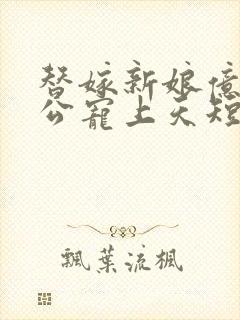 替嫁新娘億
公寵上天短
飄葉流楓